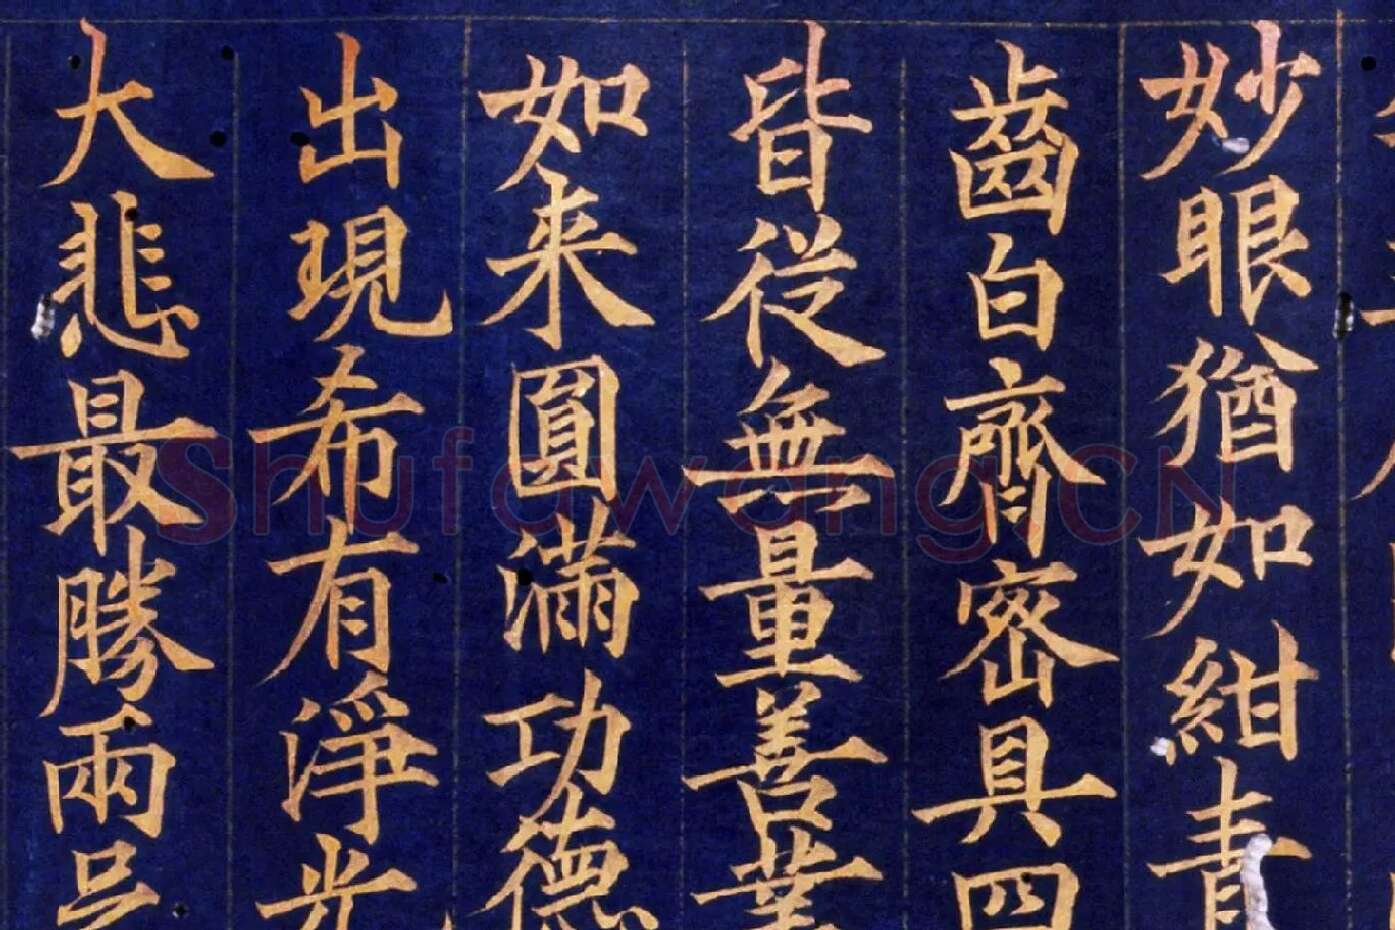 妙眼猶如紺青
齒白齊密具四
皆從無量善業
如来圓滿功德
出現希有淨光
大悲最勝兩足
Shufawang.CN